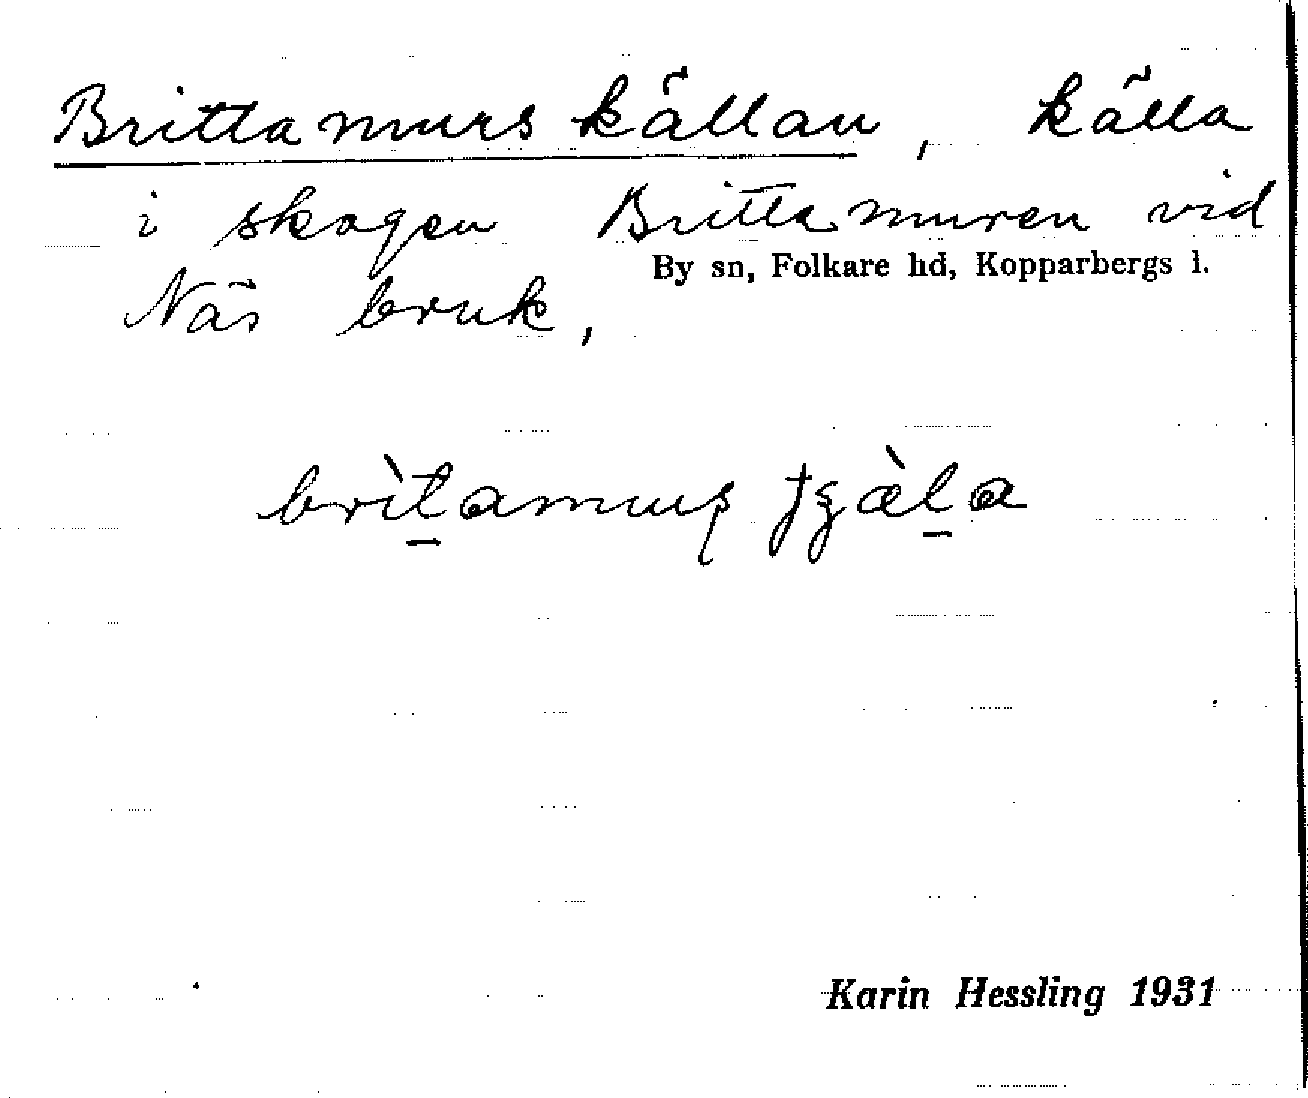 Brittamurskällan, källa
i skogen Brittamuren vid
By sn, Folkare hd, Kopparbergs l.
Näs bruk,
brìt̠amuʂ tʒæ̀l̠a
Karin Hessling 1931